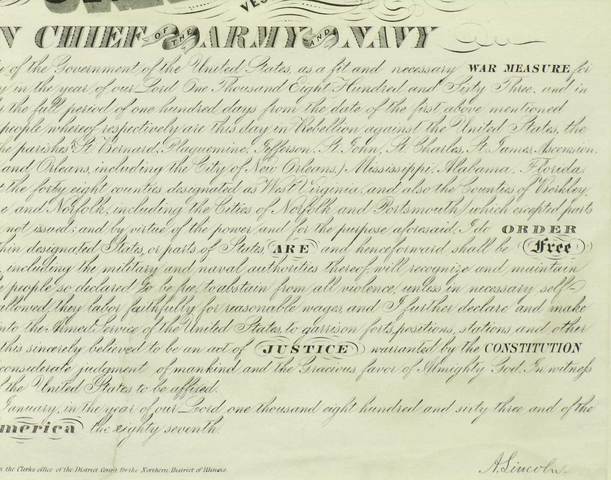 VES
N CHIEF OF THE ARMY AND NAVY
of the Government of the United States, as a fit and necessary WAR MEASURE for
y in the year of our Lord One Thousand Eight Hundred and Sixty Three, and in
r the full period of one hundred days from the date of the first above mentioned
people whereof respectively are this day in Rebellion against the United States, the
he parishes St. Bernard, Plaquemine, Jefferson, St. John, St. Charles, St. James, Ascension,
and Orleans, including the City of New Orleans) Mississippi, Alabama, Florida,
t the forty eight counties designated as West Virginia, and also the Counties of Berkley,
e and Norfolk, including the Cities of Norfolk and Portsmouth) which excepted parts
not issued; and by virtue of the power and for the purpose aforesaid, I do ORDER
thin designated States, or parts of States, ARE and henceforward shall be Free
, including the military and naval authorities thereof, will recognize and maintain
e people so declared to be free, to abstain from all violence, unless in necessary self-
allowed, they labor faithfully for reasonable wages, and I further declare and make
into the Armed Service of the United States, to garrison forts, positions, stations and other
this sincerely believed to be an act of JUSTICE warranted by the CONSTITUTION
considerate judgment of mankind and the Gracious favor of Almighty God. In witness
f the United States to be affixed.
January, in the year of our Lord, one thousand eight hundred and sixty three and of the
merica the eighty seventh.
n the Clerks office of the District Court, for the Northern District of Illinois.
A. Lincoln